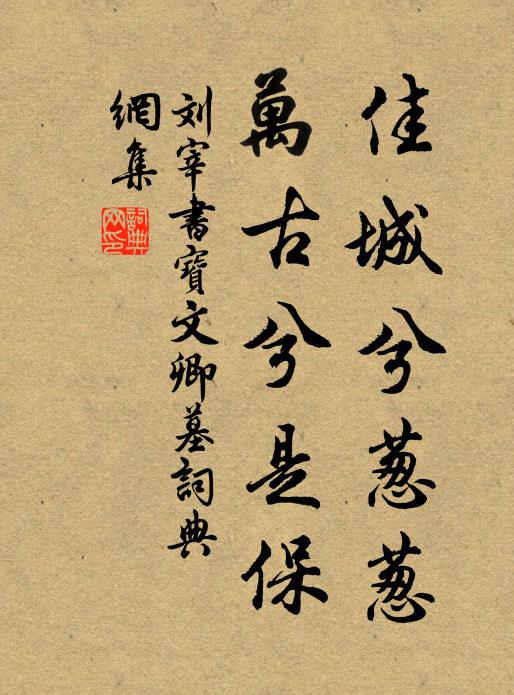 佳城兮葱葱
萬古兮是保
刘宰書寶文卿墓詞典
網集
詞典
网印